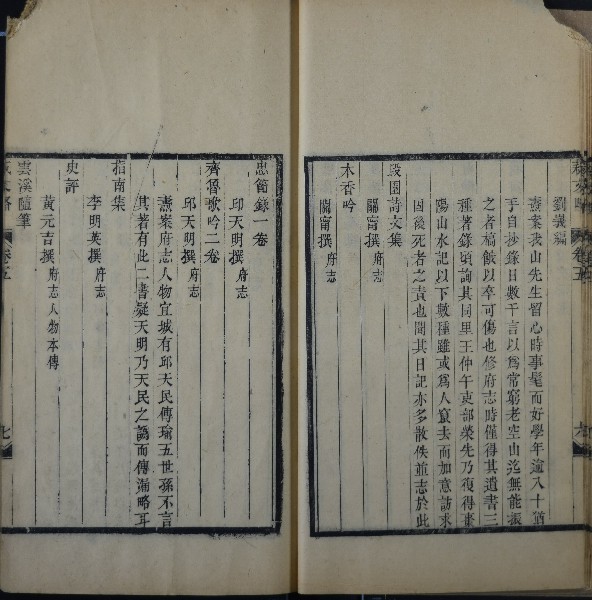 劉義編
燾案我山先生留心時事耄而好學年逾八十猶
手自抄錄日數千言以爲常窮老空山迄無能振
之者槁餓以卒可傷也修府志時僅得其遺書三
種著錄頃詢其同里王仲午哀部榮先乃復得棗
陽山水記以下數種雖或爲人竄去而如意訪求
固後死者之責也聞其日記亦多散佚並志於此
毅園詩文集
關甯撰府志
木香吟
關甯撰府志
卷五
六
忠節錄一卷
邱天明撰府志
齊魯歌吟二卷
邱天明撰府志
燾案府志人物宜城有邱天民傳瑜五世孫不言
其著有此二書疑天明乃天民之譌而傳漏略耳
指南集
李明英撰府志
史評
黃元吉撰府志人物本傳
雲溪隨筆
卷五
七